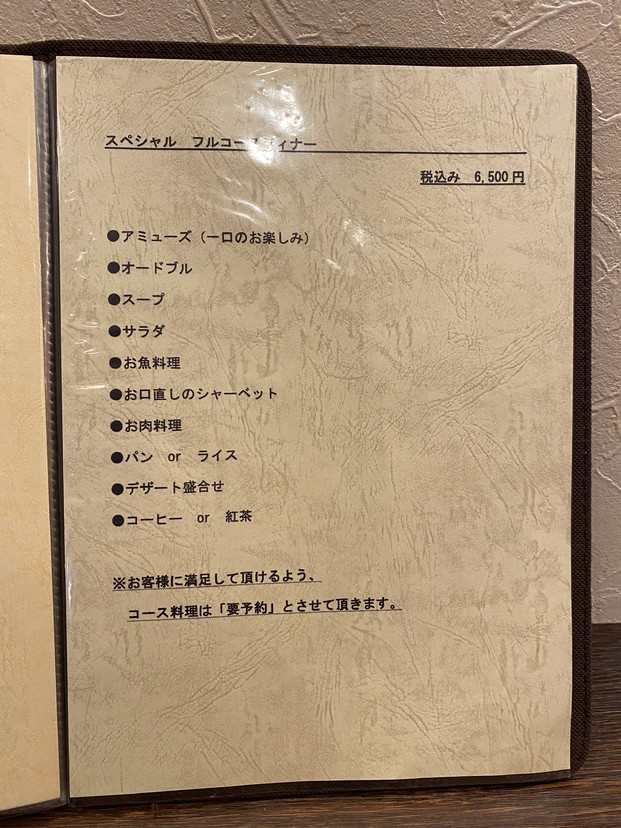 スペシャル　フルコースディナー
税込み　6,500円
●アミューズ（一口のお楽しみ）
●オードブル
●スープ
●サラダ
●お魚料理
●お口直しのシャーベット
●お肉料理
●パン　or　ライス
●デザート盛合せ
●コーヒー　or　紅茶
※お客様に満足して頂けるよう、
コース料理は「要予約」とさせて頂きます。